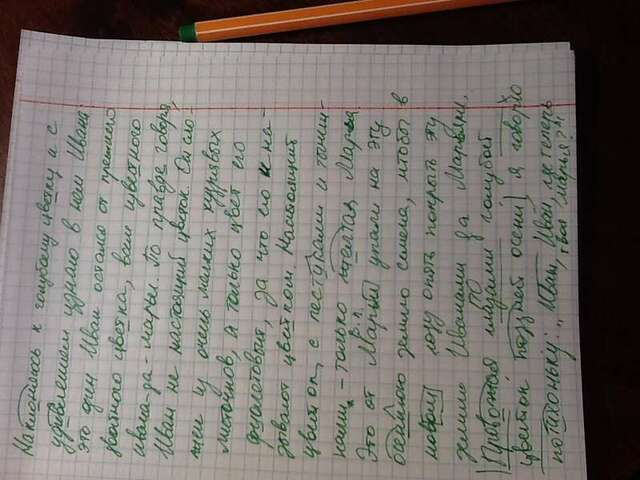 Наклоняюсь к голубому цветку и с
удивлением узнаю в нем Ивана
это один Иван остался от прежнего
двойного цветка, всем известного
ивана-да-марьи. По правде говоря,
Иван не настоящий цветок. Он сло-
жен из очень мелких кудрявых
листочков, а только цвет его
фиолетовый, за что его и на-
зывают цветком. Настоящий
цветок, с пестиками и тычин-
ками, - только желтая Марья.
Р.п.
Это от Марьи упали на эту
осеннюю землю семена, чтобы в
новом году опять покрыть эту
землю Иванами да Марьями.
по
Провожая глазами голубой
цветок поздней осени я говорю
потихоньку: "Иван, Иван, где теперь
твоя Марья?"